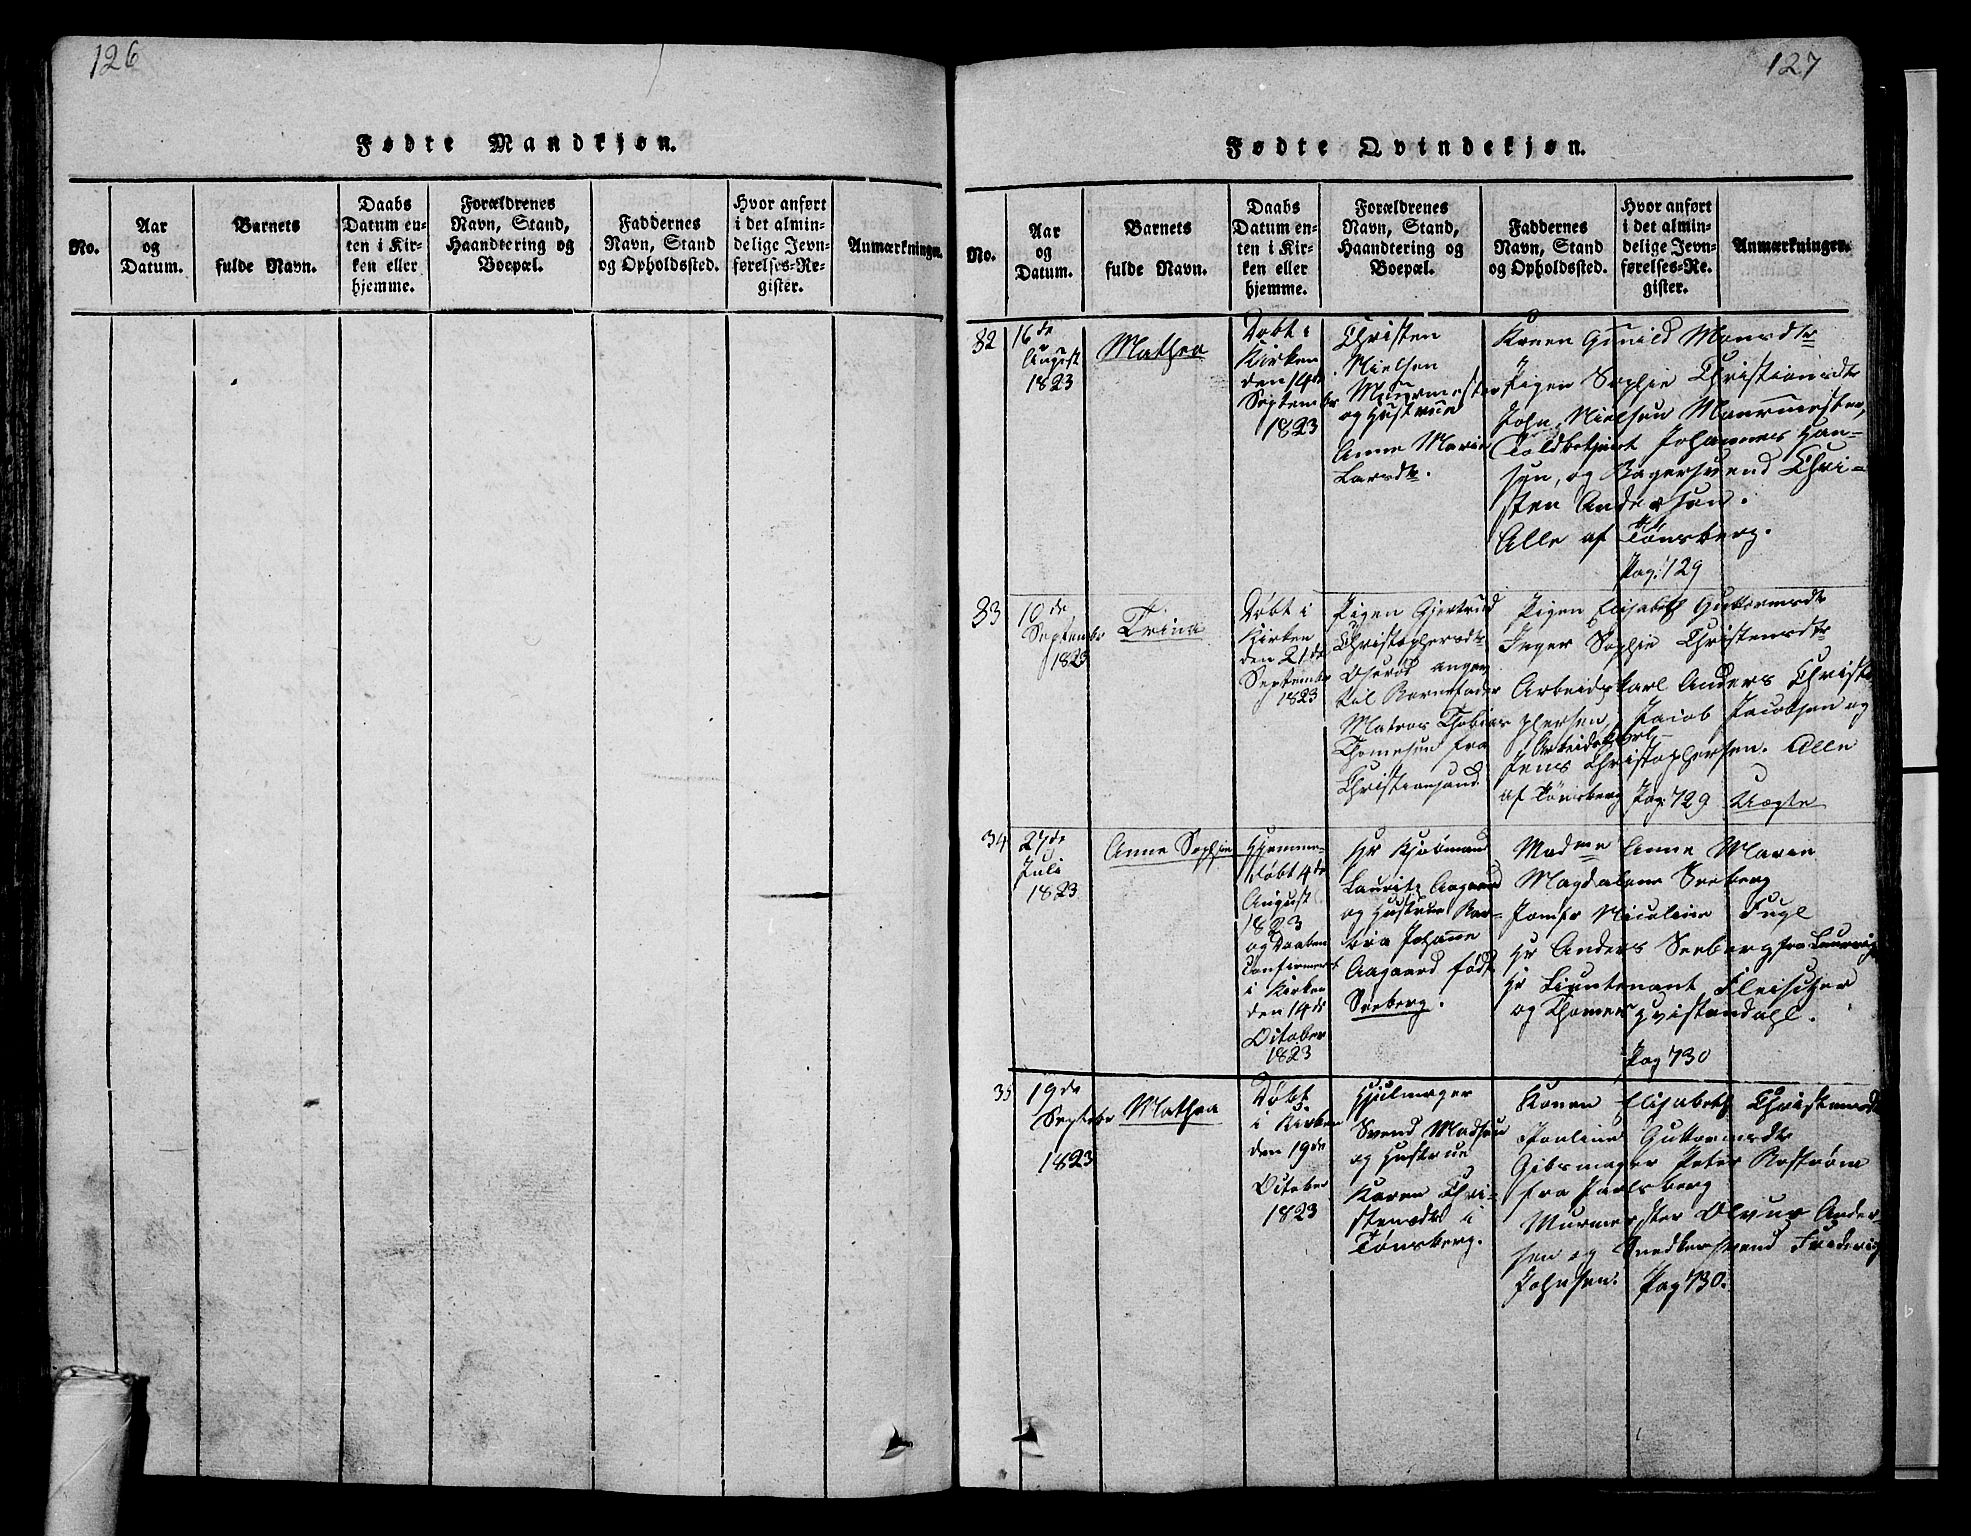 126
Fødte Mandkjøn.
No.
Aar
og
Datum.
Barnets
fulde Navn.
Daabs
Datum en-
ten i Kir-
ken eller
hjemme.
Forældrenes
Navn, Stand,
Haandtering og
Boepæl.
Faddernes
Navn, Stand
og Opholdssted.
Hvor anført
i det almin-
delige Jevn-
førelses-Re-
gister.
Anmærkninger.
127
Fødte Qvindekjøn.
No.
Aar
og
Datum.
Barnets
fulde Navn.
Daabs
Datum en-
ten i Kir-
ken eller
hjemme.
Forældrenes
Navn, Stand,
Haandtering og
Boepæl.
Faddernes
Navn, Stand
og Opholdssted.
Hvor anført
i det almin-
delige Jevn-
førelses-Re-
gister.
Anmærkninger.
32
16de
August
1823
Mathea
Døbt i
Kirken
den 14de
Septembr
1823
Christen
Nielsen
Muurmester
og Hustrue
Anne Marie
Larsdtr.
Konen Gunild Monsdtr
Pigen Sophie Christiansdtr
John Nielsen Muurmester,
Toldbetjent Johannes Han-
sen, og Bagersvend Chri-
sten Andersen.
Alle af Tønsberg.
Pag: 129
33
10de
Septembr
1823
Trina
Døbt i
Kirken
den 21de
Septembr
1823
Pigen Gjertrud
Christophersdtr
angav
til Barnefader
Matros Thobias
Thomesen fra
Christiansand
Pigen Elisabeth Guttormsdtr
Inger Sophie Christensdtr
Arbeidskarl Anders Christo
phersen, Jacob Jacobsen og
Arbeidskarl
Jens Christophersen. Alle
af Tønsberg Pag: 129 Uægte
34
27de
Juli
1823
Anne Sophie
Hjemme-
døbt 4de
August
1823
og Daaben
Confirmert
i Kirken
den 14de
October
1823
Hr Kjøbmand
Lauritz Aagaard
og Hustrue Bar-
bra Johanne
Aagaard født
Seeberg.
Madme Anne Marie
Magdalene Seeberg
Jomfr Nicoline Fugl
Hr Anders Seeberg fra Laurvig
Hr Lieutenant Fleischer
og Thomes Hvistendahl.
Pag 130
35
19de
Septembr
1823
Mathea
Døbt
i Kirken
den 19de
October
1823
Hjulmager
Svend Madsen
og Hustrue
Karen Chri-
stensdtr i
Tønsberg.
Konen Elisabeth Christensdtr
Pauline Guttormsdtr
Gibsmager Peter Rostrøm
fra Jarlsberg
Murmester Olvur Ander-
sen og Snedkersvend Frederig
Johnsen. Pag 130.